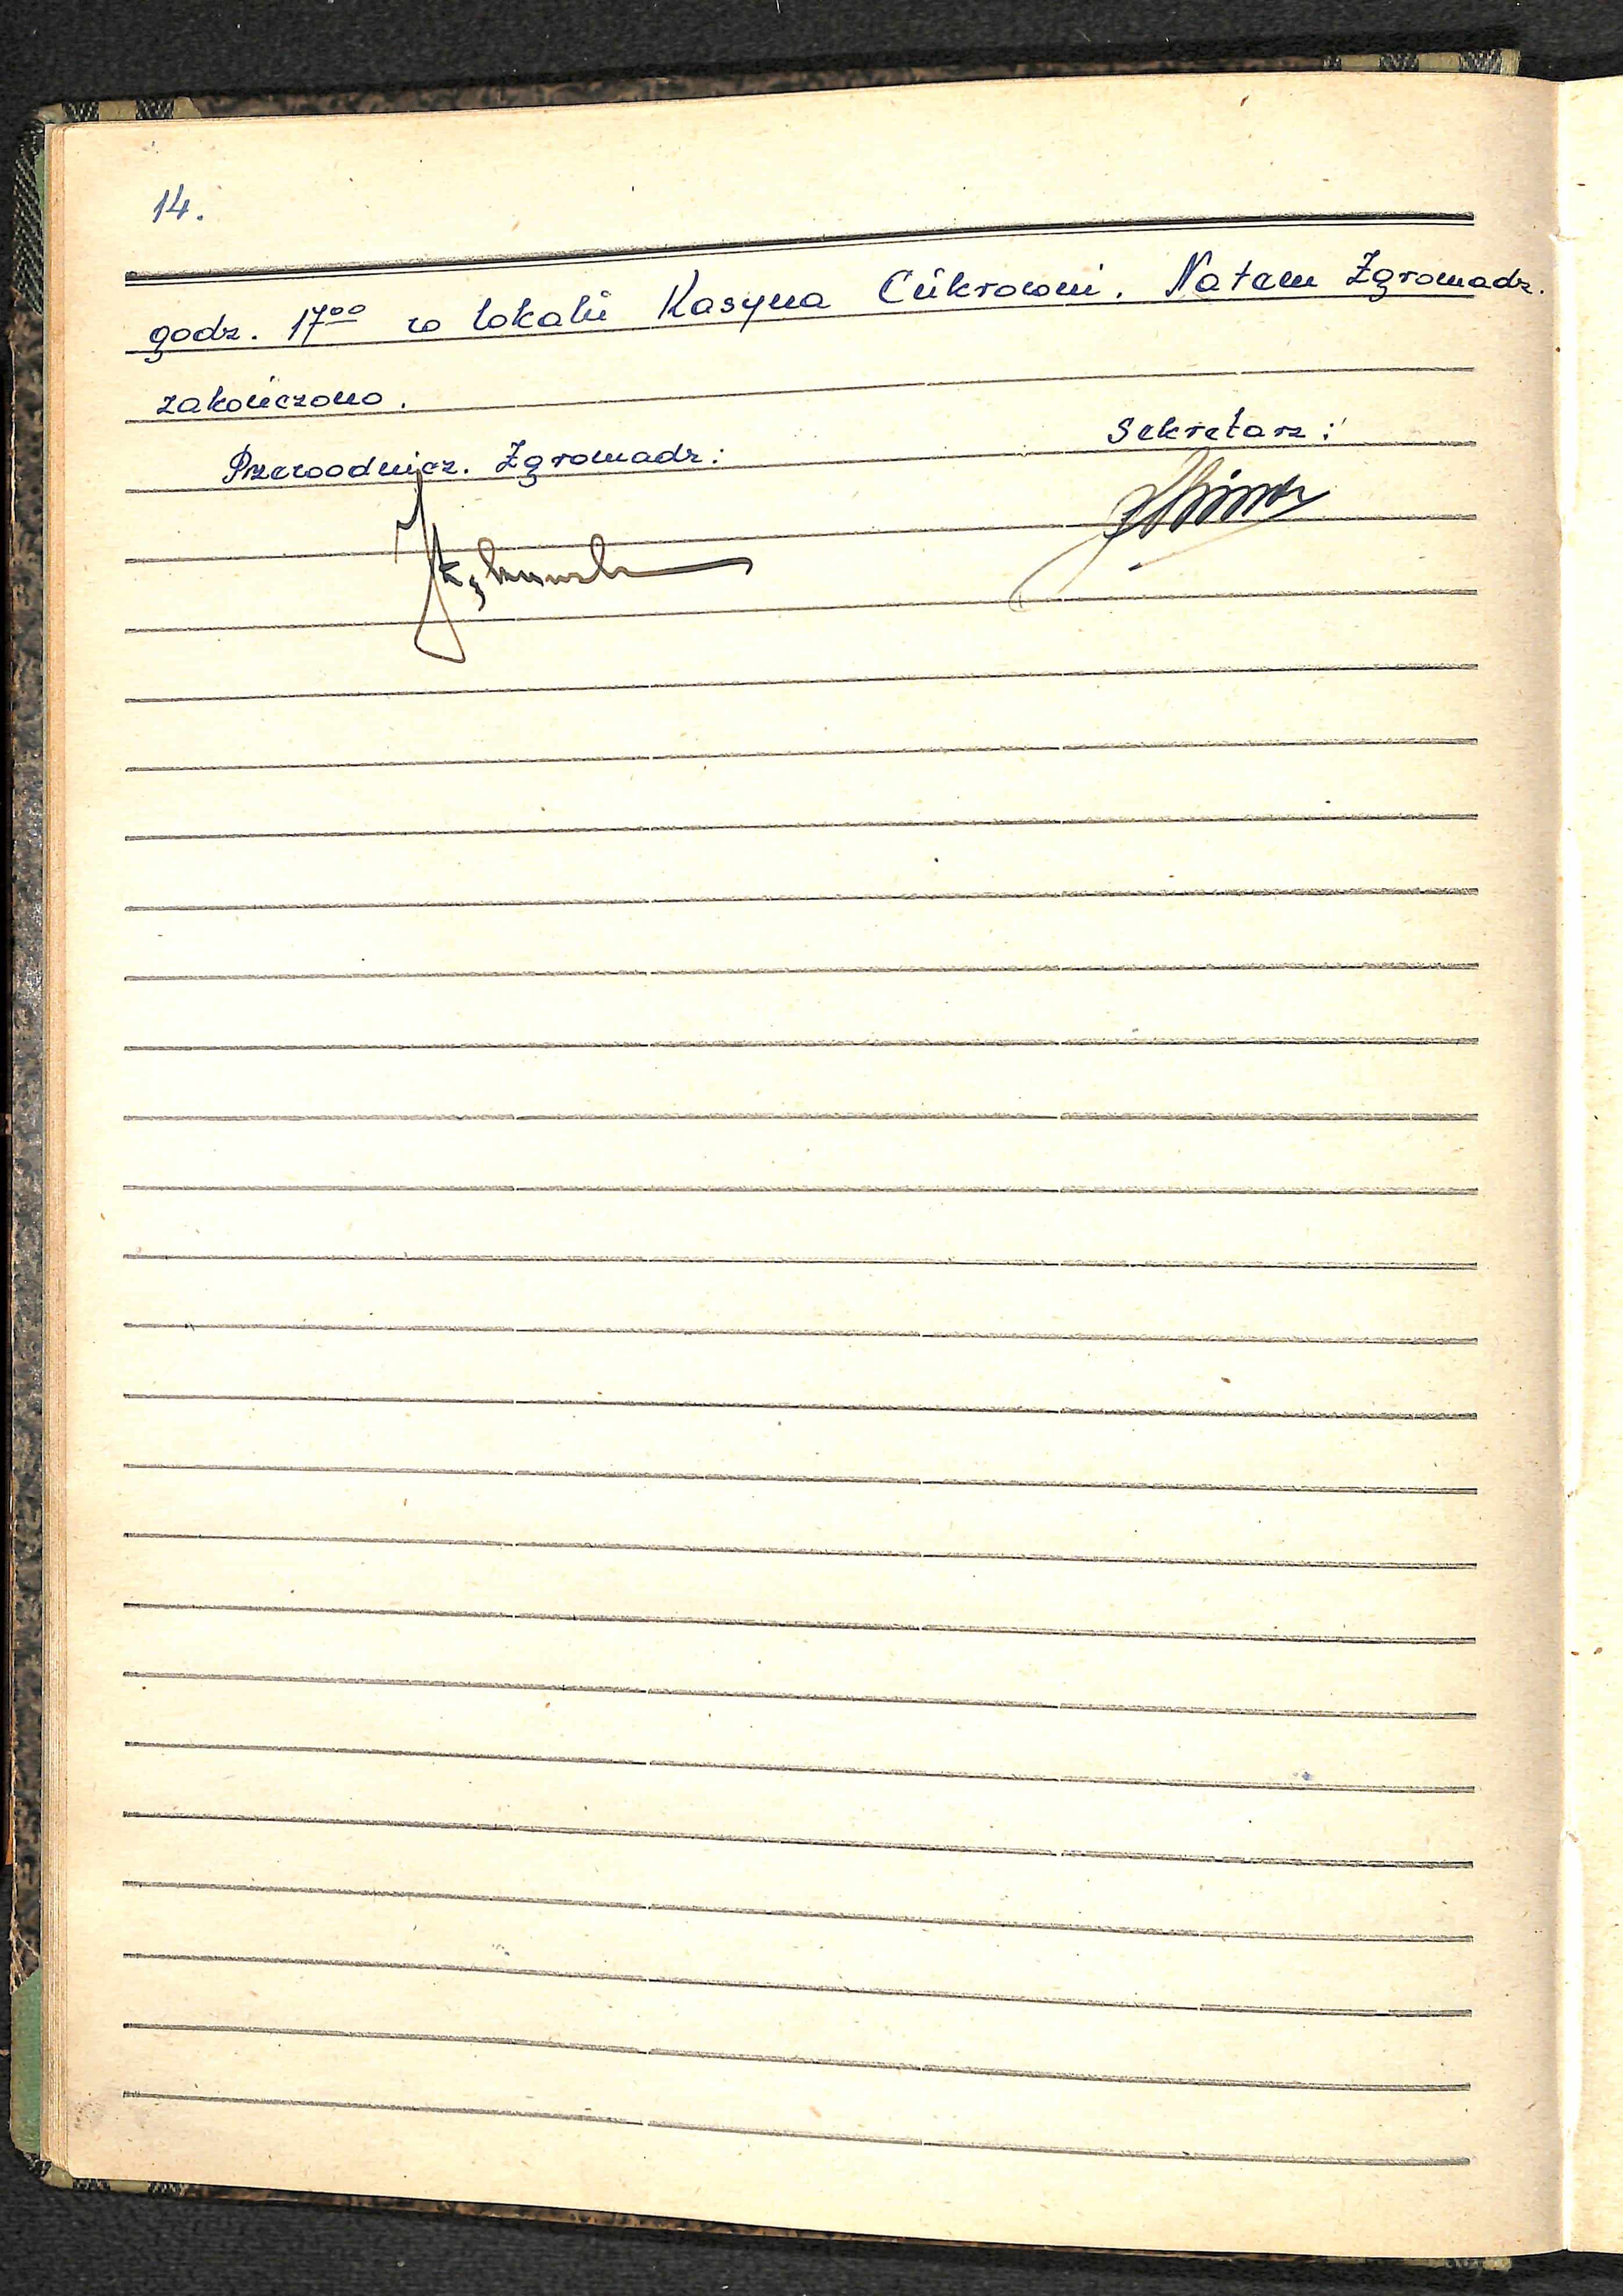 14.
godz. 17⁰⁰ w lokalu Kasyna Cukrowni. Na tem Zgromadz.
zakończono.
Przewodnicz. Zgromadz: Sekretarz: